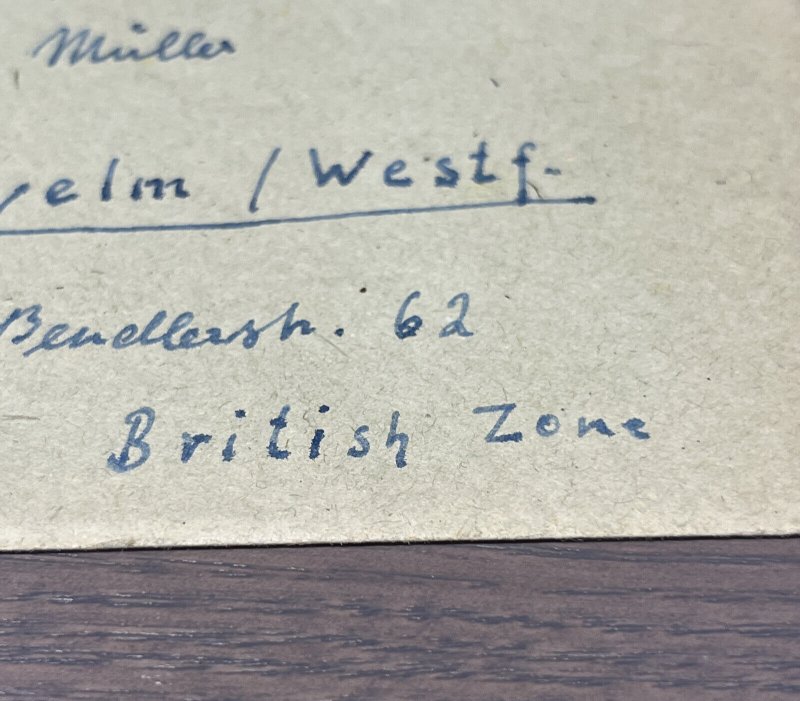 Müller
velm / Westf.
Bendlerstr. 62
British Zone